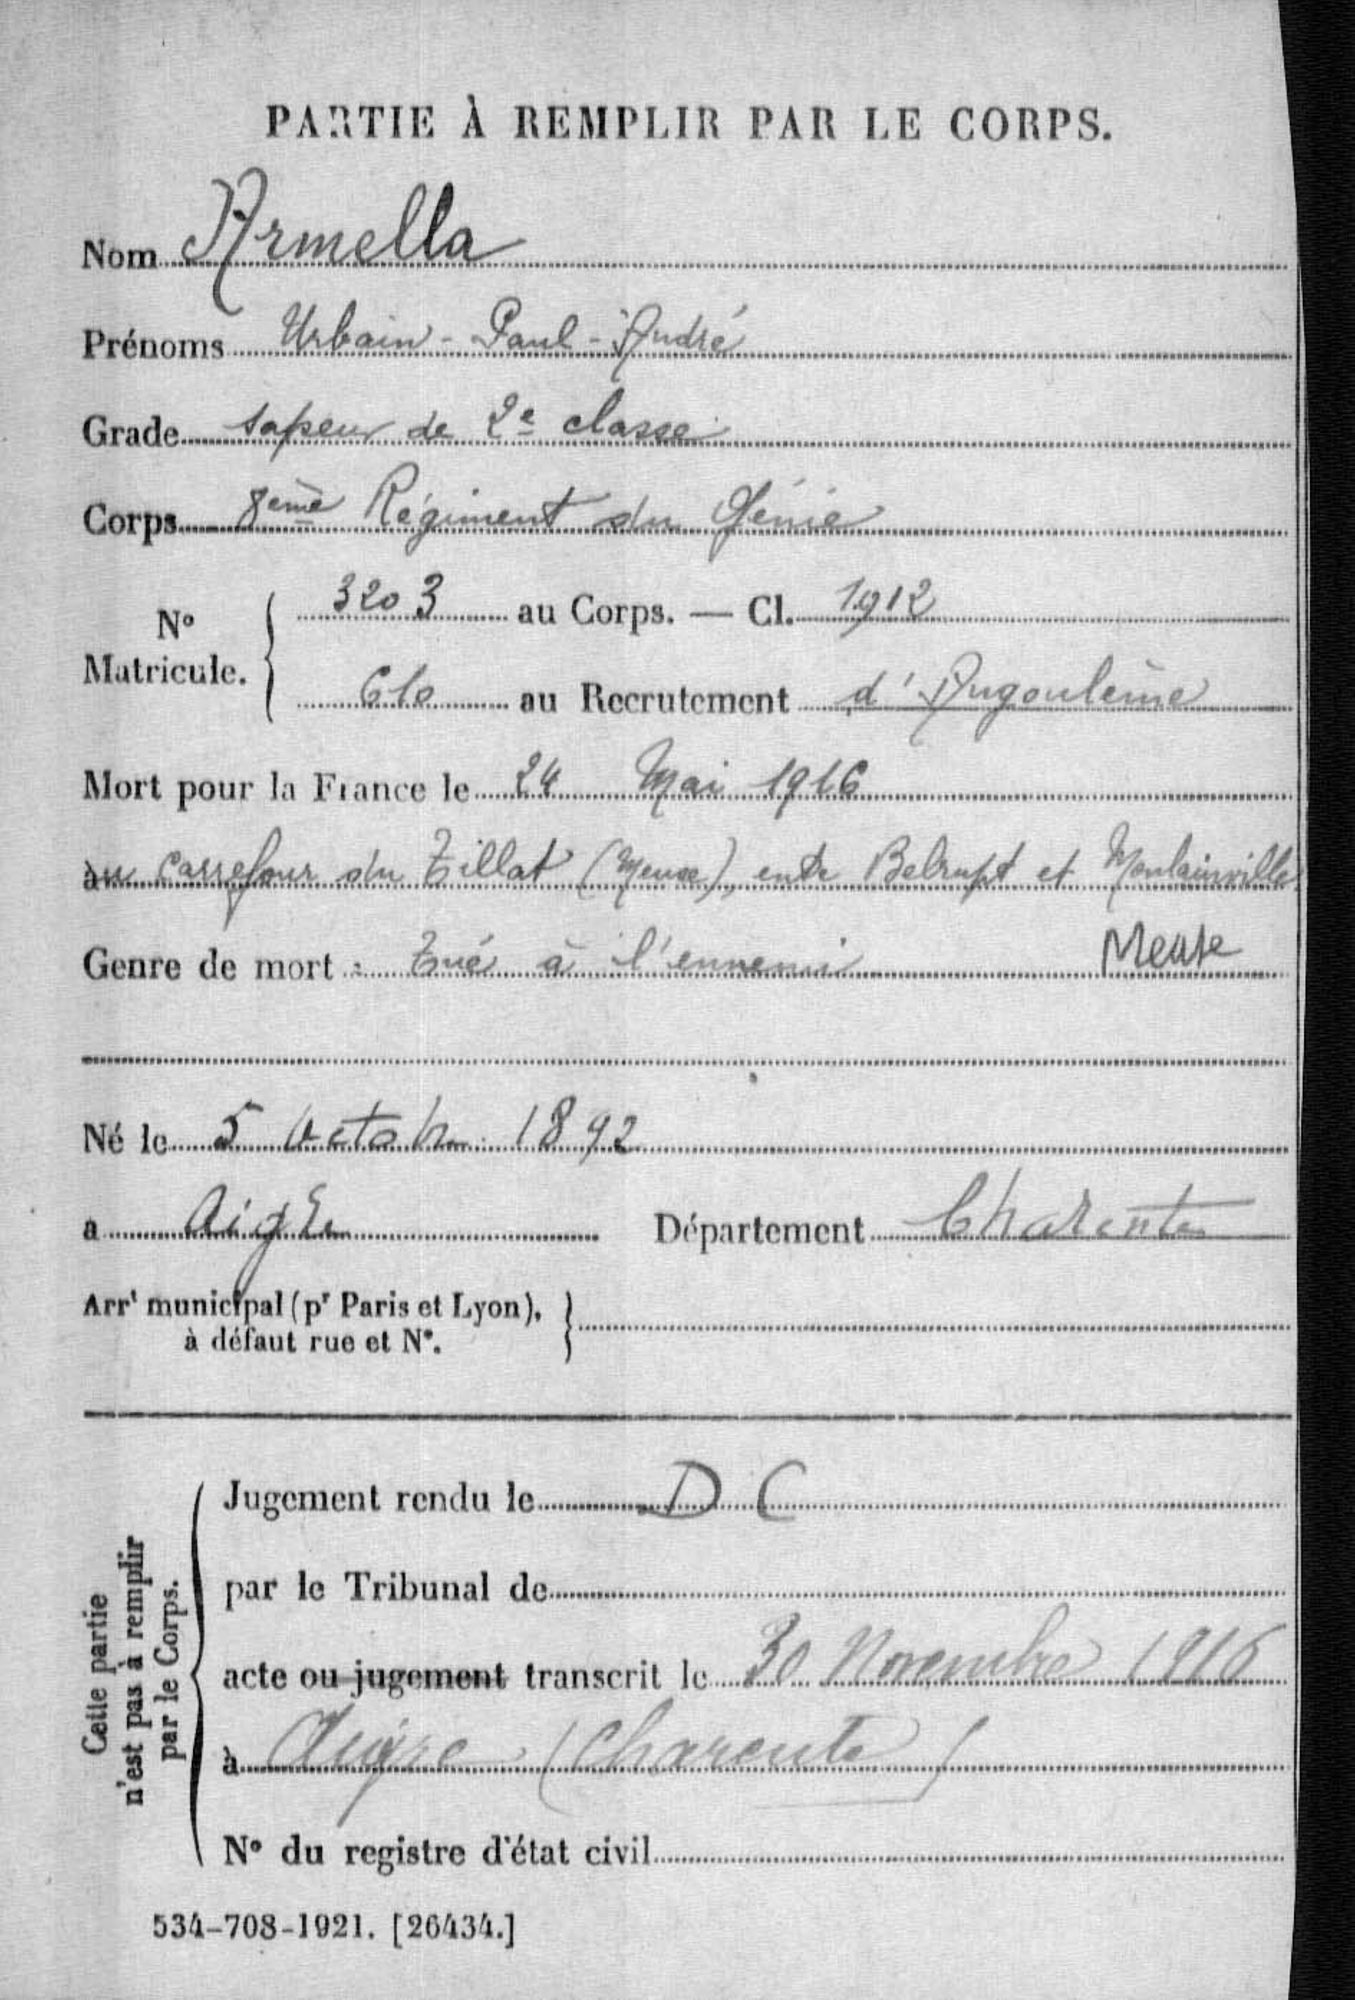 PARTIE À REMPLIR PAR LE CORPS.
Nom Armella
Prénoms Urbain - Paul - André
Grade sapeur de 2e classe
Corps 8ème Régiment du Génie
No Matricule. 3203 au Corps. — Cl. 1912
610 au Recrutement d'Angoulême
Mort pour la France le 24 Mai 1916
au carrefour du Tillat (Meuse), entre Belrupt et Moulainville
Meuse
Genre de mort : Tué à l'ennemi
Né le 5 Octobre 1892
à Aigre Département Charente
Arrt municipal (pr Paris et Lyon),
à défaut rue et No.
Cette partie
n'est pas à remplir
par le Corps.
Jugement rendu le D C
par le Tribunal de
acte ou jugement transcrit le 30 Novembre 1916
à Aigre (Charente)
No du registre d'état civil
534-708-1921. [26434.]